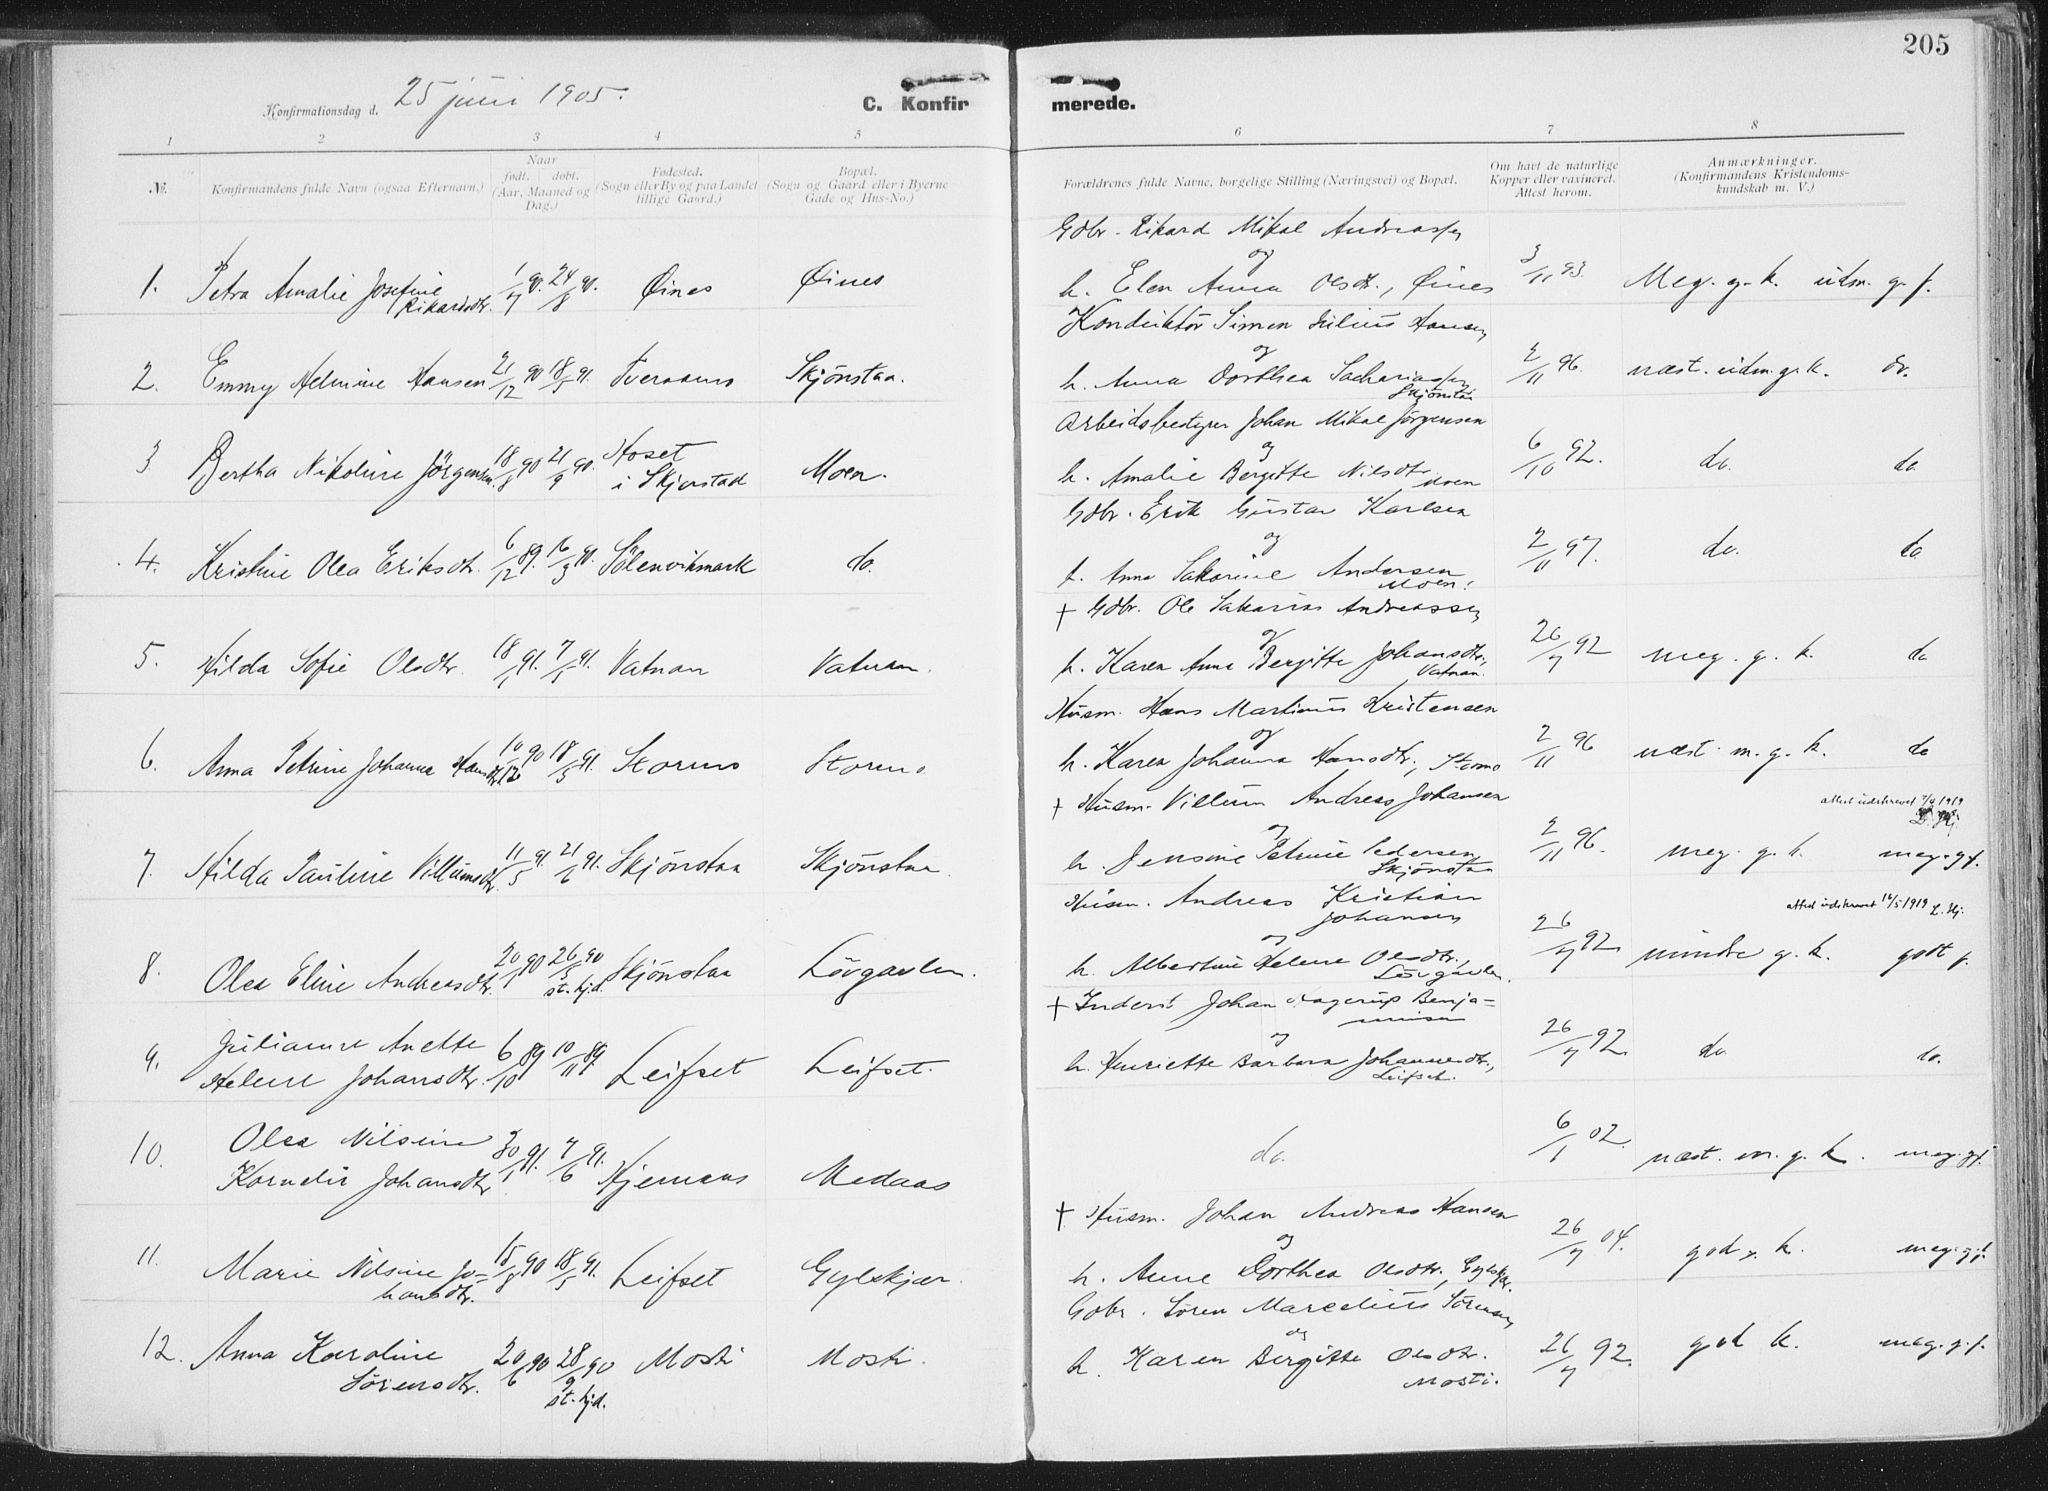 205
Konfirmationsdag d. 25 juni 1905.
C. Konfirmerede.
1 2 3 4 5 6 7 8
№. Konfirmandens fulde Navn (ogsaa Efternavn.) Naar født. døbt. (Aar, Maaned og Dag.) Fødested. (Sogn eller By og paa Landet tillige Gaard.) Bopæl. (Sogn og Gaard eller i Byerne Gade og Hus-No.) Forældrenes fulde Navne, borgelige Stilling (Næringsvei) og Bopæl. Om havt de naturlige Kopper eller vaxineret. Attest herom. Anmærkninger. (Konfirmandens Kristendomskundskab m. V.)
Gdbr. Rikard Mikal Andreassen
og
1. Petra Amalie Josefine Rikardsdtr. 1/7 90. 24/8 90. Øines Øines h. Elen Anna Olsdtr., Øines 3/11 93. Meg. g. k. udm. g. f.
Konduktör Simon Julius Hansen
og
2. Emmy Helmine Hansen 21/12 90 18/5 91. Tveraanes Skjönstaa. h. Anna Dorthea Sachariassen Skjönstaa 2/11 96. næst. udm. g. k. do.
Arbeidsbestyrer Johan Mikal Jörgensen
og
3 Bertha Nikoline Jörgensen. 18/8 90 21/9 90. Hoset i Skjerstad Moen. h. Amalie Bergitte Nilsdtr. Moen 6/10 92. do. do
Gdbr. Erik Gustav Karlsen
og
4. Kristine Olea Eriksdtr. 6/12 89. 16/3 90. Sölenvikmark do. h. Anna Sakorine Andersen Moen. 2/11 97. do. do
† Gdbr. Ole Sakarias Andreassen
og
5. Hilda Sofie Olsdtr. 18/1 91. 7/5 91. Vatnan Vatnan. h. Karen Anna Bergitte Johansdtr., Vatnan. 26/7 92 meg. g. k. do
Husm. Hans Martinus Kristensen
og
6. Anna Petrine Johanna Hansdtr. 10/12 90 18/5 91. Stormo Stormo h. Karen Johanna Hansdtr., Stormo 2/11 96 næst. m. g. k. do
† Husm. Villum Andreas Johansen attest udskrevet 7/4 1919
og
7. Hilda Pauline Villumsdtr. 11/5 91. 21/6 91. Skjönstaa Skjönstaa h. Jensine Petrine Pedersen Skjönstaa 2/11 96. meg. g. k. meg. g. f.
Husm. Andreas Kristian Johansen attest udskrevet 12/5 1919 L. Hj.
og
8. Olea Eline Andreasdtr. 20/1 90 26/5 90 st. hjd. Skjönstaa Lövgavlen. h. Albertine Helene Olsdtr., Lövgavlen 26/7 92 mindre g. k. godt f.
† Inderst Johan Hagerup Benjaminsen
og
9. Julianne Anette Helene Johansdtr. 6/10 89 10/11 89. Leifset Leifset. h. Henriette Barbara Johannesdtr., Leifset. 26/7 92. do. do.
10. Olea Nilsine Kornelie Johansdtr. 30/1 91. 7/6 91. Hjemaas Medaas do. 6/1 02. næst. m. g. k. meg. g. f.
† Husm. Johan Andreas Hansen
og
11. Marie Nilsine Johansdtr. 15/8 90 18/5 91. Leifset Gylskjær. h. Anne Dorthea Olsdtr., Gylskjær. 26/7 04. god k. meg. g. f.
Gdbr. Sören Marcelius Sörensen
og
12. Anna Karoline Sörensdtr. 20/6 90 28/9 90 st. hjd. Mosti Mosti. h. Karen Bergitte Olsdtr. Mosti. 26/7 92. god k. meg. g. f.